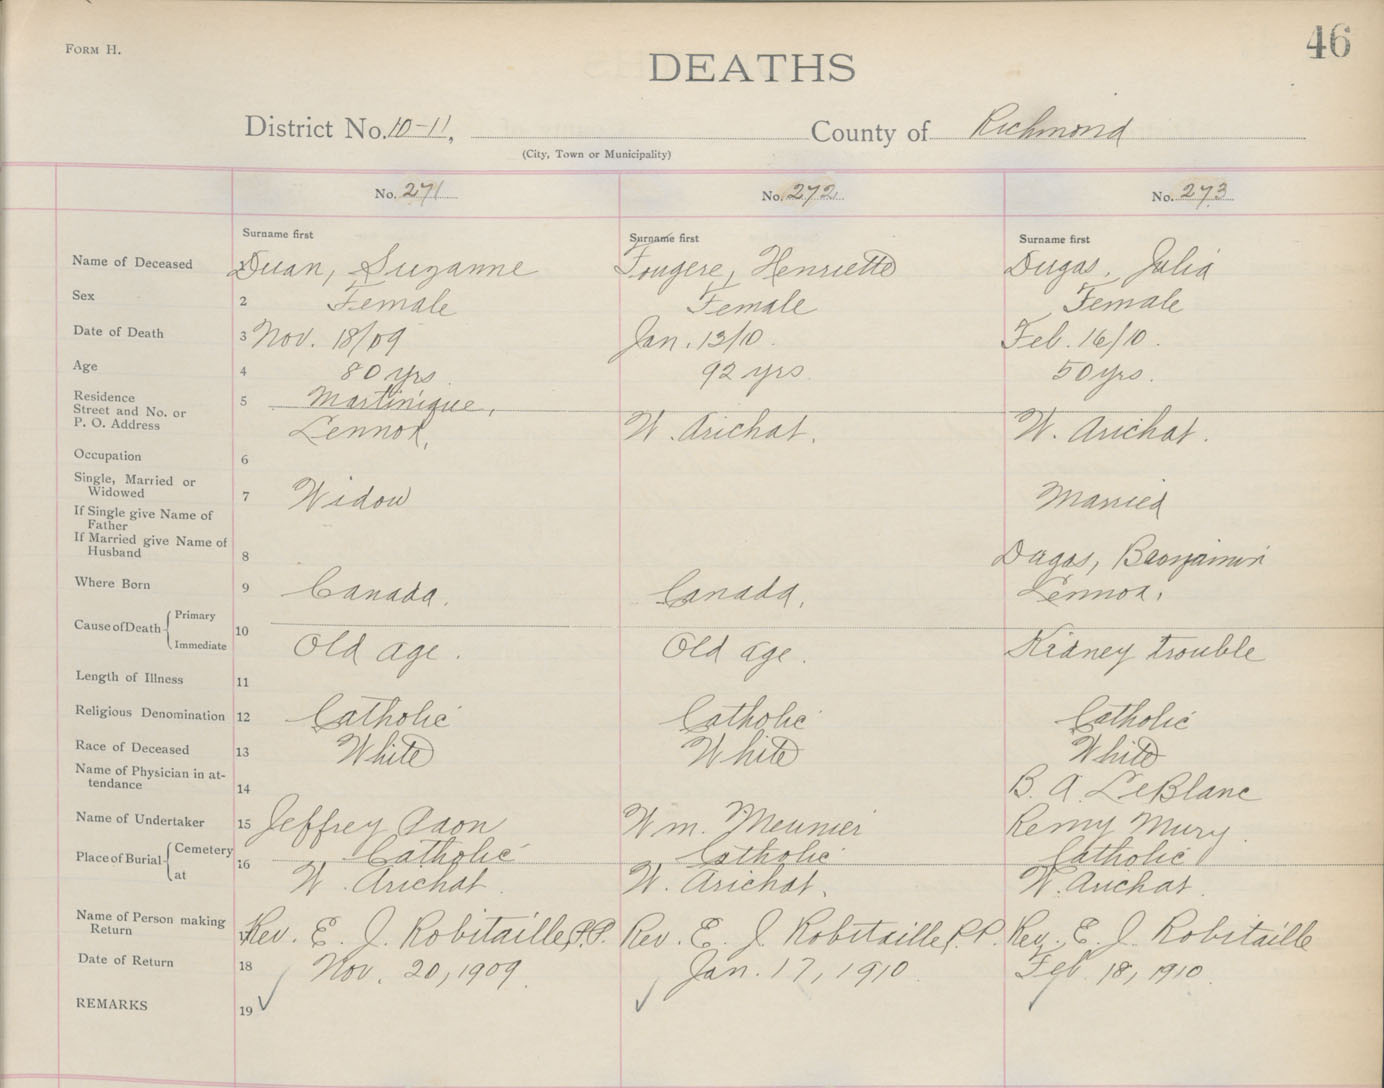 FORM H.
46
DEATHS
District No. 10-11, County of Richmond
(City, Town or Municipality)
No. 271 No. 272 No. 273
Surname first Surname first Surname first
Name of Deceased 1 Duan, Suzanne Fougere, Henriette Dugas, Julia
Sex 2 Female Female Female
Date of Death 3 Nov. 18/09 Jan. 13/10. Feb. 16/10.
Age 4 80 yrs. 92 yrs 50 yrs.
Residence 5 Martinique,
Street and No. or
P. O. Address Lennox, W. Arichat. W. Arichat.
Occupation 6
Single, Married or
Widowed 7 Widow Married
If Single give Name of
Father
If Married give Name of
Husband 8 Dugas, Benjamin
Where Born 9 Canada. Canada. Lennox.
Cause of Death Primary
10
Immediate Old age. Old age. Kidney trouble
Length of Illness 11
Religious Denomination 12 Catholic Catholic Catholic
Race of Deceased 13 White White White
Name of Physician in at-
tendance 14 B. A. LeBlanc
Name of Undertaker 15 Jeffrey Paon Wm. Meunier Remy Mury
Place of Burial Cemetery 16 Catholic Catholic Catholic
at W. Arichat W. Arichat. W. Arichat.
Name of Person making
Return 17 Rev. E. J. Robitaille, P.P. Rev. E. J. Robitaille, P.P. Rev. E. J. Robitaille
Date of Return 18 Nov. 20, 1909. Jan. 17, 1910 Feb. 18, 1910.
REMARKS 19